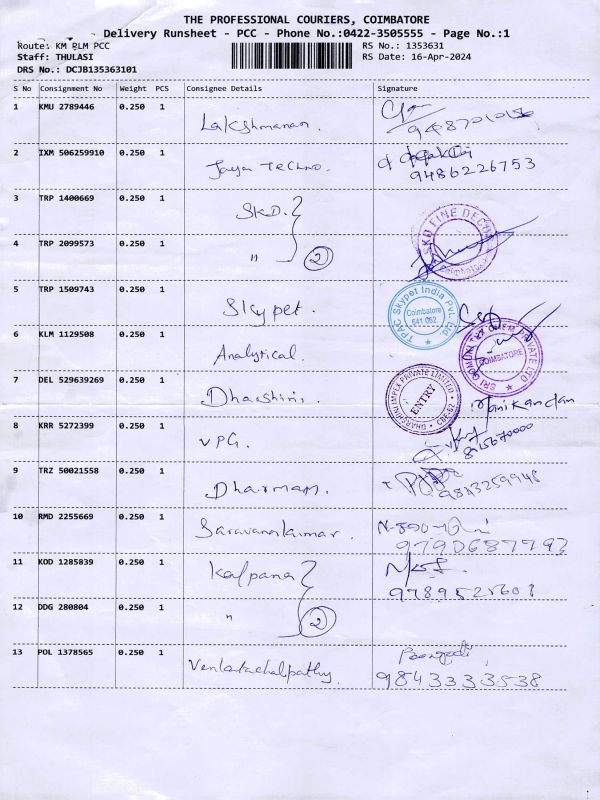 THE PROFESSIONAL COURIERS, COIMBATORE
Delivery Runsheet - PCC - Phone No.:0422-3505555 - Page No.:1
Route: KM PLM PCC
RS No.: 1353631
Staff: THULASI
RS Date: 16-Apr-2024
DRS No.: DCJB135363101
S No Consignment No Weight PCS Consignee Details Signature
1 KMU 2789446 0.250 1 Lakshmanan.
2 IXM 506259910 0.250 1 Jaya Techno.
9486226753
3 TRP 1400669 0.250 1 SKD.
SKD FINE
Coimbatore
4 TRP 2099573 0.250 1 " 2
5 TRP 1509743 0.250 1 Skypet.
TPAC Skypet India Pvt. Ltd
Coimbatore
641 062.
6 KLM 1129508 0.250 1 Analytical.
COIMBATORE
7 DEL 529639269 0.250 1 Dharshini.
DHARSHINI IMPEX PRIVATE LIMITED
ENTRY
Manikandan
8 KRR 5272399 0.250 1 VPG.
9 TRZ 50021558 0.250 1 Dharman.
9843259948
10 RMD 2255669 0.250 1 Saravanakumar.
9790687793
11 KOD 1285839 0.250 1 Kalpana
12 DDG 280804 0.250 1 " 2
13 POL 1378565 0.250 1 Venkatachalpathy.
9843333538